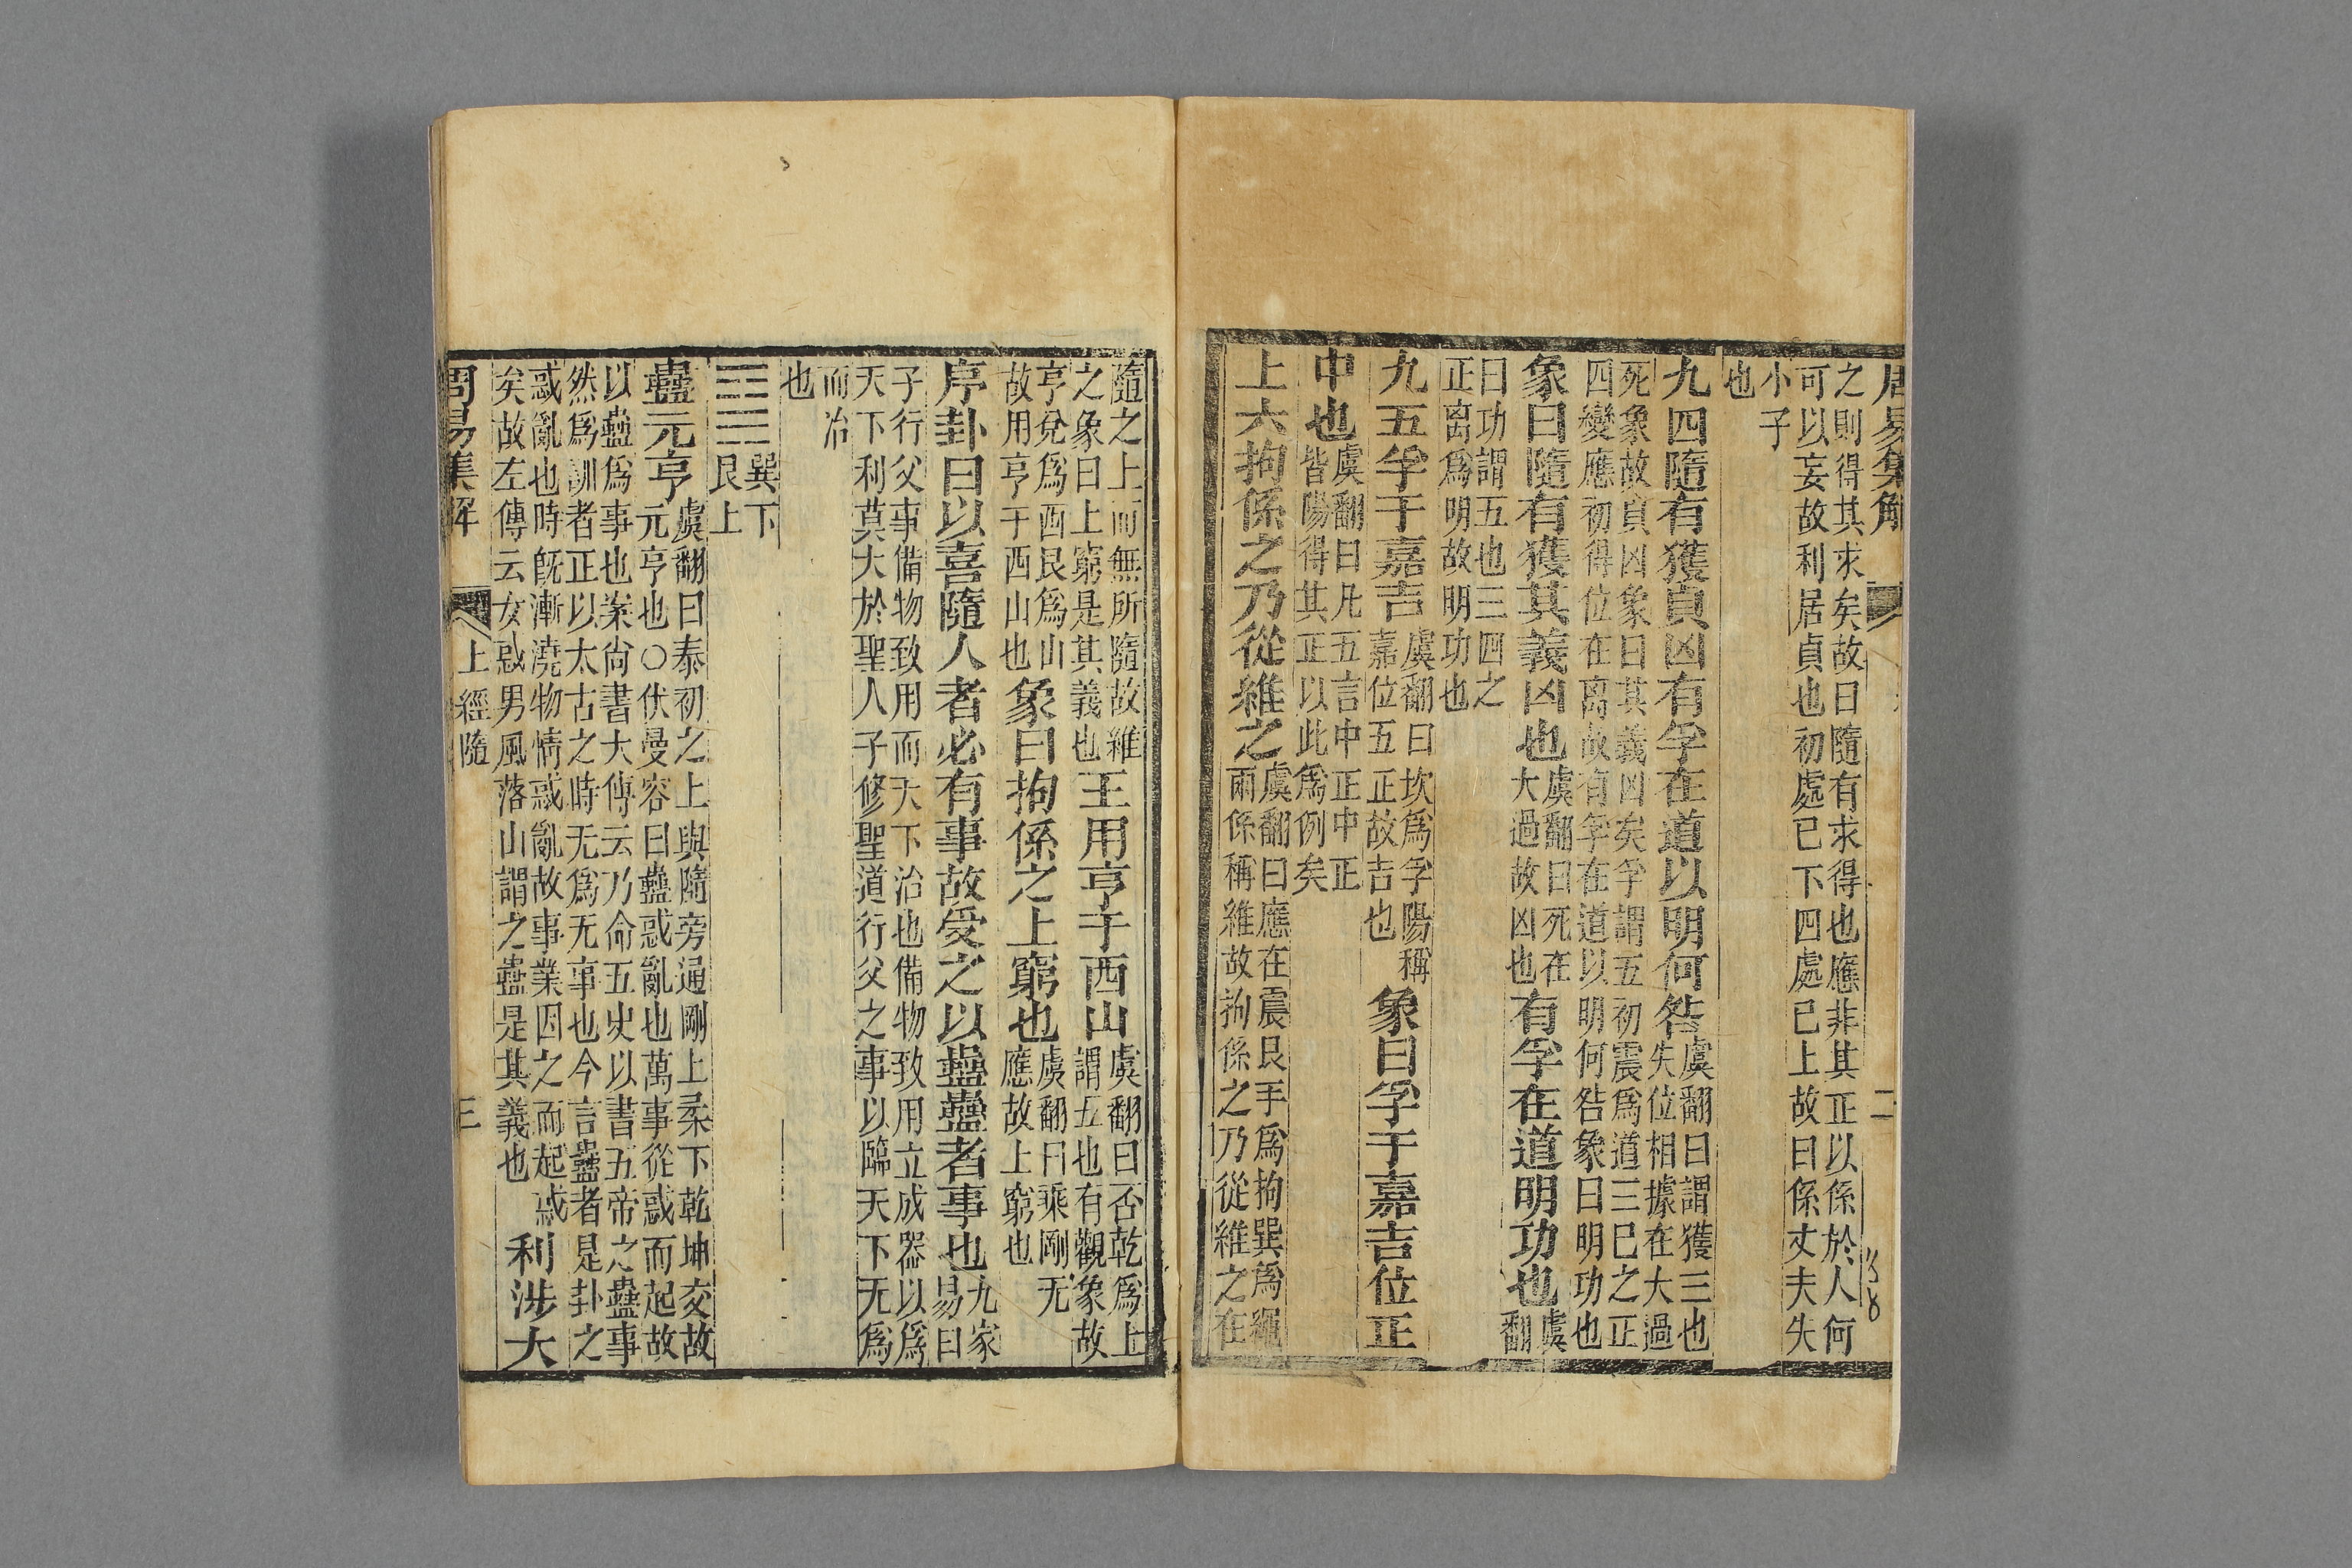 周易集解
二
之則得其求矣故曰隨有求得也應非其正以係於人何
可以妄故利居貞也初處已下四處已上故曰係丈夫失
小子
也
九四隨有獲貞凶有孚在道以明何咎
虞翻曰謂獲三也
失位相據在大過
死象故貞凶象曰其義凶矣孚謂五初震爲道三已之正
四變應初得位在离故有孚在道以明何咎象曰明功也
象曰隨有獲其義凶也
虞翻曰死在
大過故凶也
有孚在道明功也
虞
翻
曰功謂五也三四之
正离爲明故明功也
九五孚于嘉吉
虞翻曰坎爲孚陽稱
嘉位五正故吉也
象曰孚于嘉吉位正
中也
虞翻曰凡五言中正中正
皆陽得其正以此爲例矣
上六拘係之乃從維之
虞翻曰應在震艮手爲拘巽爲繩
兩係稱維故拘係之乃從維之在
隨之上而無所隨故維
之象曰上窮是其義也
王用亨于西山
虞翻曰否乾爲上
謂五也有觀象故
亨兌爲西艮爲山
故用亨于西山也
象曰拘係之上窮也
虞翻曰乘剛无
應故上窮也
序卦曰以喜隨人者必有事故受之以蠱蠱者事也
九家
易曰
子行父事備物致用而天下治也備物致用立成器以爲
天下利莫大於聖人子修聖道行父之事以臨天下无爲
而治
也
巽下
艮上
蠱元亨
虞翻曰泰初之上與隨旁通剛上柔下乾坤交故
元亨也○伏曼容曰蠱惑亂也萬事從惑而起故
以蠱爲事也案尙書大傳云乃命五史以書五帝之蠱事
然爲訓者正以太古之時无爲无事也今言蠱者是卦之
惑亂也時旣漸澆物情惑亂故事業因之而起惑
矣故左傳云女惑男風落山謂之蠱是其義也
利涉大
周易集解
上經隨
三